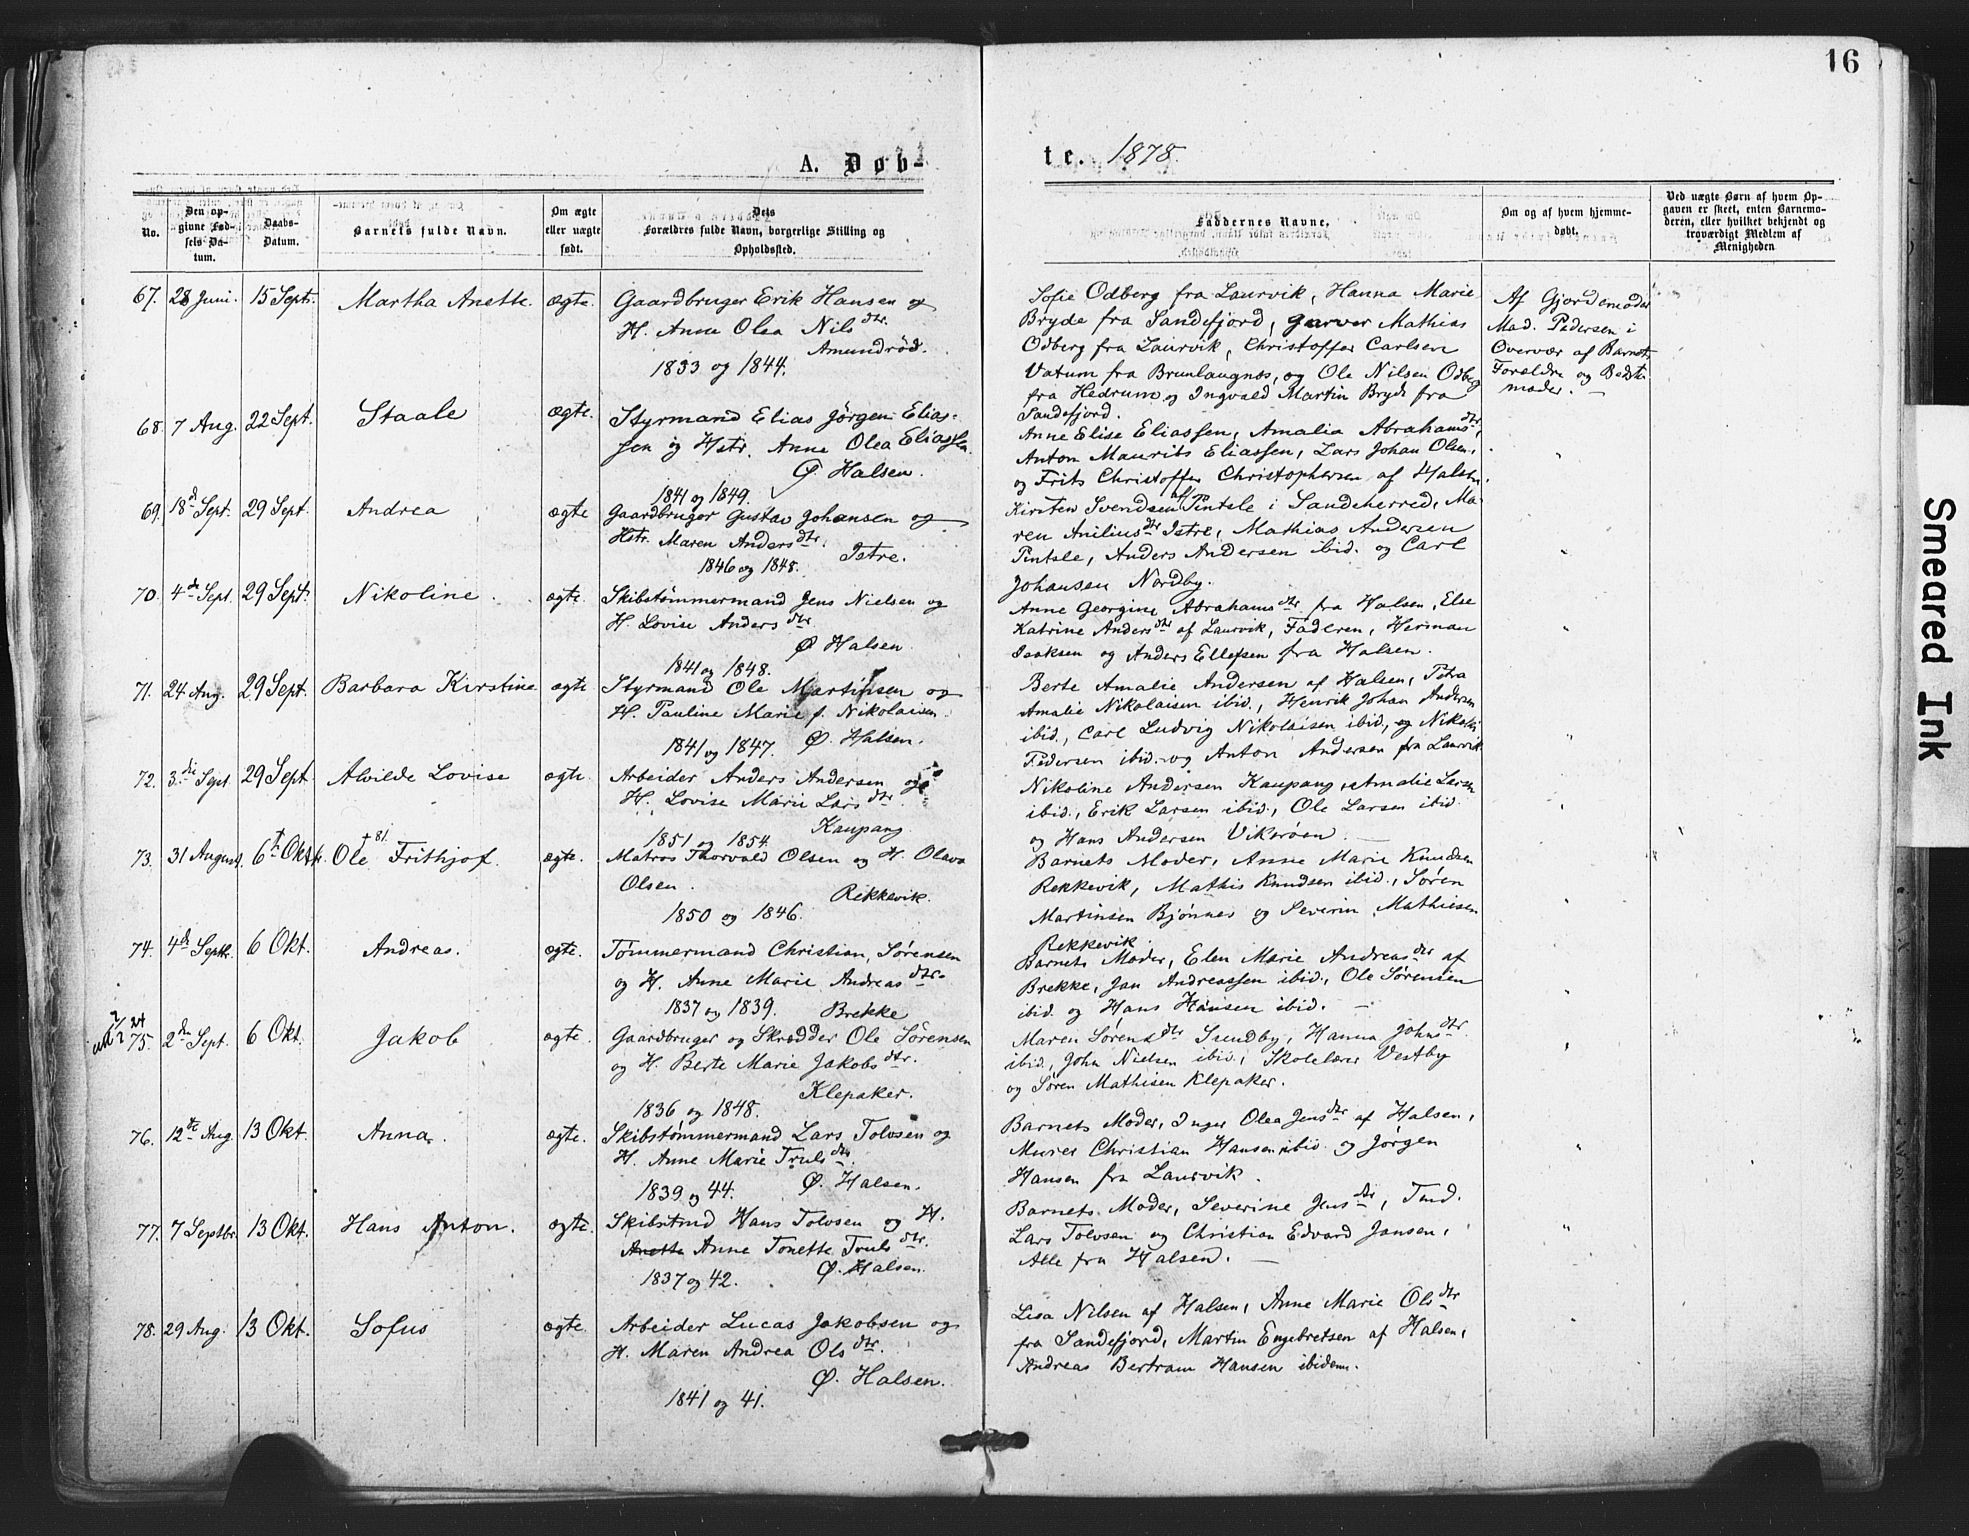 16
A. Døb-
te. 1878.
No.
Den op-
givne Fød-
sels Da-
tum.
Daabs-
Datum.
Barnets fulde Navn.
Om ægte
eller uægte
født.
Dets
Forældres fulde Navn, borgerlige Stilling og
Opholdssted.
Faddernes Navne,
Om og af hvem hjemme-
døbt.
Ved uægte Børn af hvem Op-
gaven er skeet, enten Barnemo-
deren, eller hvilket bekjendt og
troværdigt Medlem af
Menigheden
67. 28 Juni. 15 Sept. Martha Anette ægte. Gaardbruger Erik Hansen og
H. Anne Olea Nilsdtr.
Amundrød.
1833 og 1844.
Sofie Odberg fra Laurvik, Hanna Marie
Bryde fra Sandefjord, garver Mathias
Odberg fra Laurvik, Christoffer Carlsen
Vatum fra Brunlaugnæs, og Ole Nilsen Odberg
fra Hedrum og Ingvald Martin Bryde fra
Sandefjord.
Af Gjordemoder
Mad. Pedersen i
Overvær af Barnets
Forældre og Bedste
moder. —
68. 7 Aug. 22 Sept. Staale ægte. Styrmand Elias Jørgen Elias-
sen og Hstr. Anne Olea Eliassen
Ø. Halsen.
1841 og 1849.
Anne Elise Eliassen, Amalia Abrahamsdtr,
Anton Maurits Eliassen, Lars Johan Olsen,
og Frits Christoffer Christophersen af Halsen.
"
69. 18d Sept. 29 Sept. Andrea ægte Gaardbruger Gustav Johansen og
Hstr. Maren Andersdtr.
Istre.
1846 og 1848.
Kirsten Svendsen af Pintsle i Sandeherred, Ma-
ren Aniliusdtr Istre, Mathias Andersen
Pintsle, Anders Andersen ibid. og Carl
Johansen Nordby.
"
70. 4de Sept. 29 Sept. Nikoline. ægte. Skibstømmermand Jens Nielsen og
H. Lovise Andersdtr.
Ø Halsen.
1841 og 1848.
Anne Georgine Abrahamsdtr fra Halsen, Else
Katrine Andersdtr af Laurvik, Faderen, Herman
Isaksen og Anders Ellefsen fra Halsen.
"
71. 24 Aug. 29 Sept. Barbara Kirstine ægte Styrmand Ole Martinsen og
H. Pauline Marie f. Nikolaisen.
1841 og 1847. Ø. Halsen.
Berte Amalie Andersen af Halsen, Petra
Amalie Nikolaisen ibid., Henrik Johan Andersen
ibid., Carl Ludvig Nikolaisen ibid., og Nikolai
Pedersen ibid. og Anton Andersen fra Laurvik
"
72. 3die Sept 29 Sept. Alvilde Lovise ægte. Arbeider Anders Andersen og
H. Lovise Marie Larsdtr.
Kaupang.
1851 og 1854.
Nikoline Andersen Kaupang, Amalie Larsen
ibid., Erik Larsen ibid., Ole Larsen ibid.
og Hans Andersen Vikerøen. —
"
73. 31 August. 6te Oktb. Ole Frithjof. ægte. Matros Thorvald Olsen og H. Olava
† 81.
Olsen.
Rekkevik.
1850 og 1846.
Barnets Moder, Anne Marie Knudsen
Rekkevik, Mathis Knudsen ibid., Søren
Martinsen Bjønnes og Severin Mathiesen
Rekkevik.
"
74. 4de Septb. 6 Okt. Andreas. ægte. Tømmermand Christian Sørensen
og H. Anne Marie Andreasdtr.
1837 og 1839. Brekke
Barnets Moder, Elen Marie Andreasdtr af
Brekke, Jan Andreassen ibid., Ole Sørensen
ibid. og Hans Hansen ibid. —
"
75. 2den Sept. 6 Okt. Jakob ægte. Gaardbruger og Skrædder Ole Sörensen
og H. Berte Marie Jakobsdtr.
Klepaker.
1836 og 1848.
Maren Sørensdtr Sundby, Hanna Johnsdtr
ibid., John Nielsen ibid., Skolelærer Vestby
og Søren Mathisen Klepaker.
"
76. 12te Aug. 13 Okt. Anna. ægte. Skibstømmermand Lars Tolvsen og
H. Anne Marie Trulsdtr
1839 og 44. Ø. Halsen.
Barnets Moder, Inger Olea Jensdtr af Halsen,
Murer Christian Hansen ibid. og Jørgen
Hansen fra Laurvik.
"
77. 7 Septbr. 13 Okt. Hans Anton. ægte. Skibstmd Hans Tolvsen og H.
Anette Anne Tonette Trulsdtr.
Ø. Halsen.
1837 og 42.
Barnets Moder, Severine Jensdtr, Tmd.
Lars Tolvsen og Christian Edvard Jansen,
Alle fra Halsen. —
"
78. 29 Aug. 13 Okt. Sofus ægte. Arbeider Lucas Jakobsen og
H. Maren Andrea Olsdtr.
Ø. Halsen.
1841 og 41.
Lisa Nilsen af Halsen, Anne Marie Olsdtr
fra Sandefjord, Martin Engebretsen af Halsen,
Andreas Bertram Hansen ibidem.
Smeared Ink